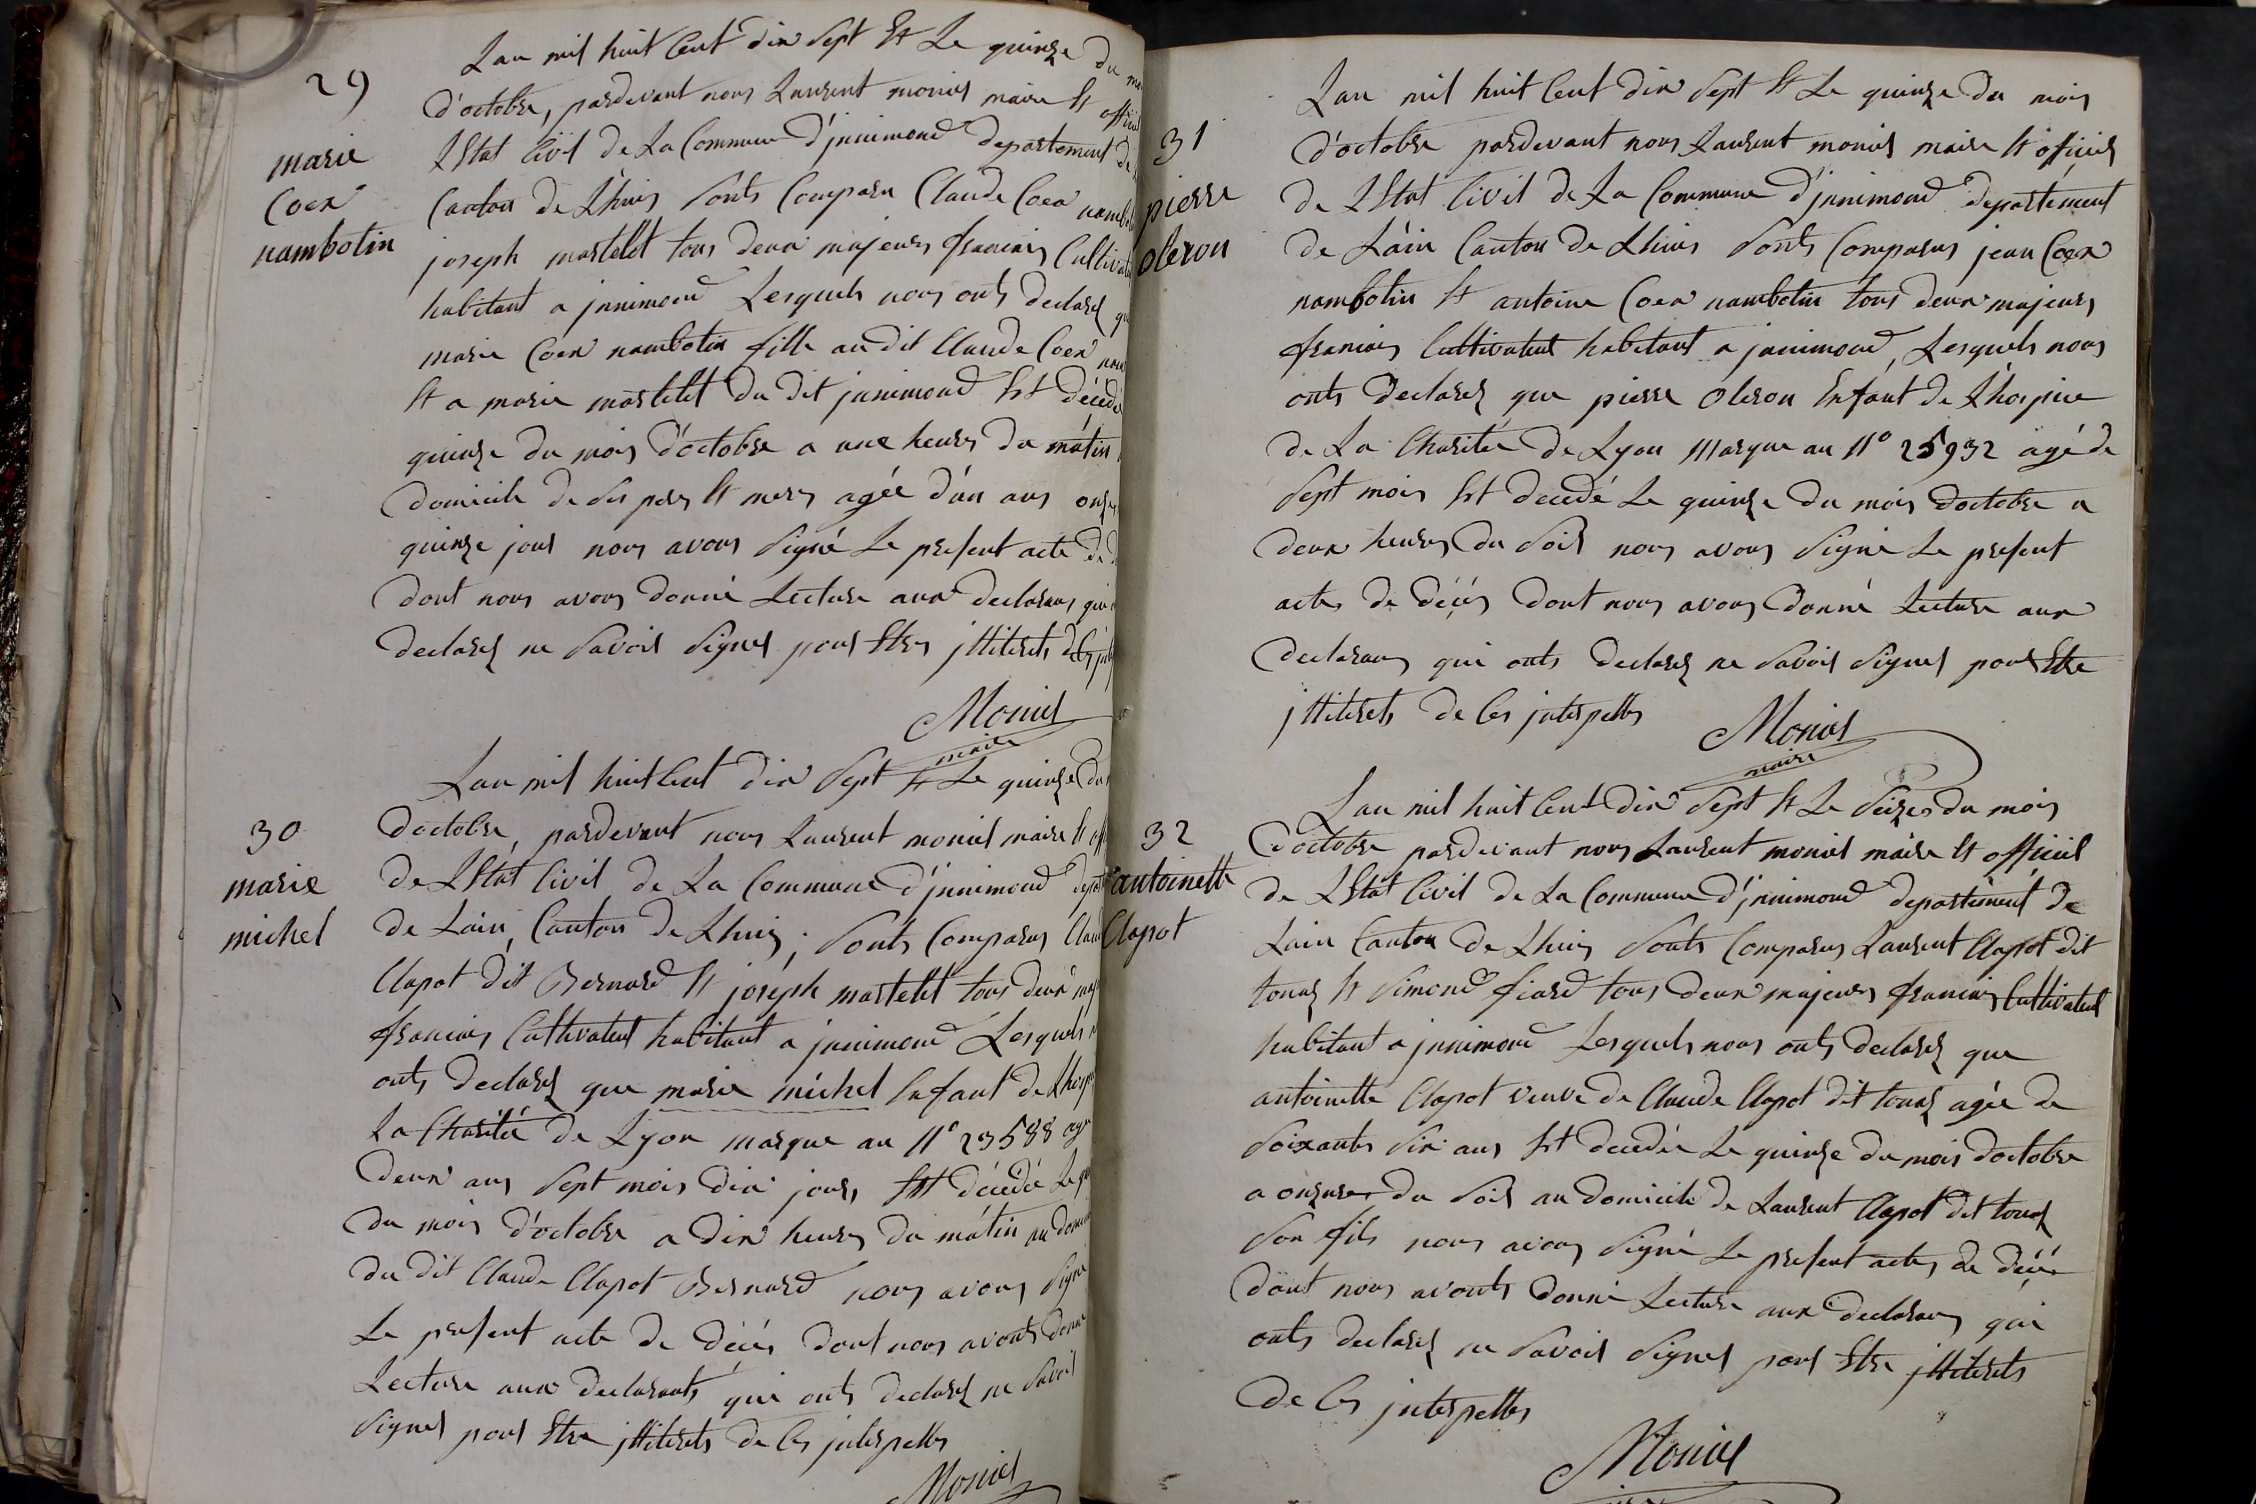 29
marie
Coex
nambotin
Lan mil huit Cent dix Sept Et Le quinze du
d'octobre, pardevant nous Laurent monier maire Et
LEtat Civil de La Commune d'jnnimond departement
Canton de Lhuis Sonts Comparu Claude Coex
joseph martelet tous deux majeurs francais
habitant a jnnimond Lesquels nous onts declarez
marie Coex nambotin fille au dit Claude Coex
Et a marie martelet du dit jnnimond Est
quinze du mois d'octobre a une heures du matin
domicile de Ses pere Et meres agée d'un ans
quinze jour nous avons Signé Le present acte
dont nous avons donné Lecture aux declarans
declarez ne Savoir Signer pour Etres jlliterets
Monier
maire
30
marie
michel
Lan mil huit Cent dix Sept Et Le quinze du
doctobre, pardevant nous Laurent monier maire Et
de LEtat Civil de La Commune d'jnnimond
de Lain, Canton de Lhuis, Sonts Comparus
Clapot dit Bernard Et joséph martelet tous deux
francais Cultivateur habitant a jnnimond Lesquels
onts declarez que marie michel Enfant de
La Charitée de Lyon marque au N° 23588
deux ans Sept mois dix jours Est décédée
du mois d'octobre a dix heures du matin au
du dit Claude Clapot Bernard nous avons Signé
Le present acte de décés dont nous avonts
Lecture aux declarants qui onts declarez ne Savoir
Signer pour Etre jlliterets de Ces jnterpelles
Monier
31
pierre
oleron
Lan mil huit Cent dix Sept Et Le quinze du mois
d'octobre pardevant nous Laurent monier maire Et officier
de LEtat Civil de La Commune d'jnnimond departément
de Láin Canton de Lhuis Sonts Comparus jean Coex
nambotin Et antoine Coex nambotin tous deux majeurs
francais Cultivateur habitant a jnnimond, Lesquels nous
onts declarez que pierre Oleron Enfant de Lhospice
de La Charitée de Lyon Marque au N° 25932 agé de
Sept mois Est decedé Le quinze du mois doctobre a
deux heures du Soir nous avons Signé Le present
actes de décés dont nous avons donné Lecture aux
declarans qui onts declarez ne Savoir Signer pour Etre
jlliterets de Ces jnterpelles
Monier
maire
32
antoinette
Clapot
Lan mil huit Cent dix Sept Et Le Seizes du mois
d'octobre pardevant nous Laurent monier maire Et officier
de LEtat Civil de La Commune d'jnnimond departement de
Lain Canton de Lhuis Sonts Comparus Laurent Clapot dit
tonaz Et Simond fiard tous deux majeurs francais Cultivateur
habitant a jnnimond Lesquels nous onts declarez que
antoinette Clapot veuve de Claude Clapot dit tonaz agée de
Soixantes Six ans Est decedée Le quinze du mois doctobre
a du Soir au domicile de Laurent Clapot dit tonaz
Son fils nous avons Signé Le present actes de décés
dont nous avonts donné Lecture aux declarans qui
onts declarez ne Savoir Signer pour Etre jlliterets
de Ces jnterpelles
Monier